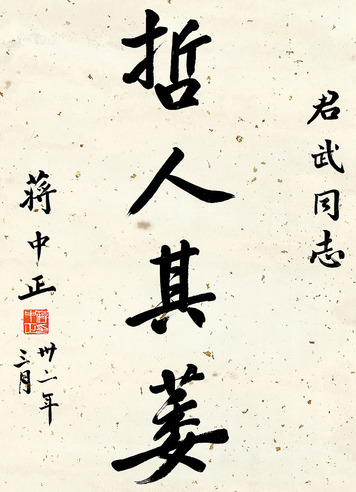 君武同志
哲人其萎
蔣中正
卅二年
三月